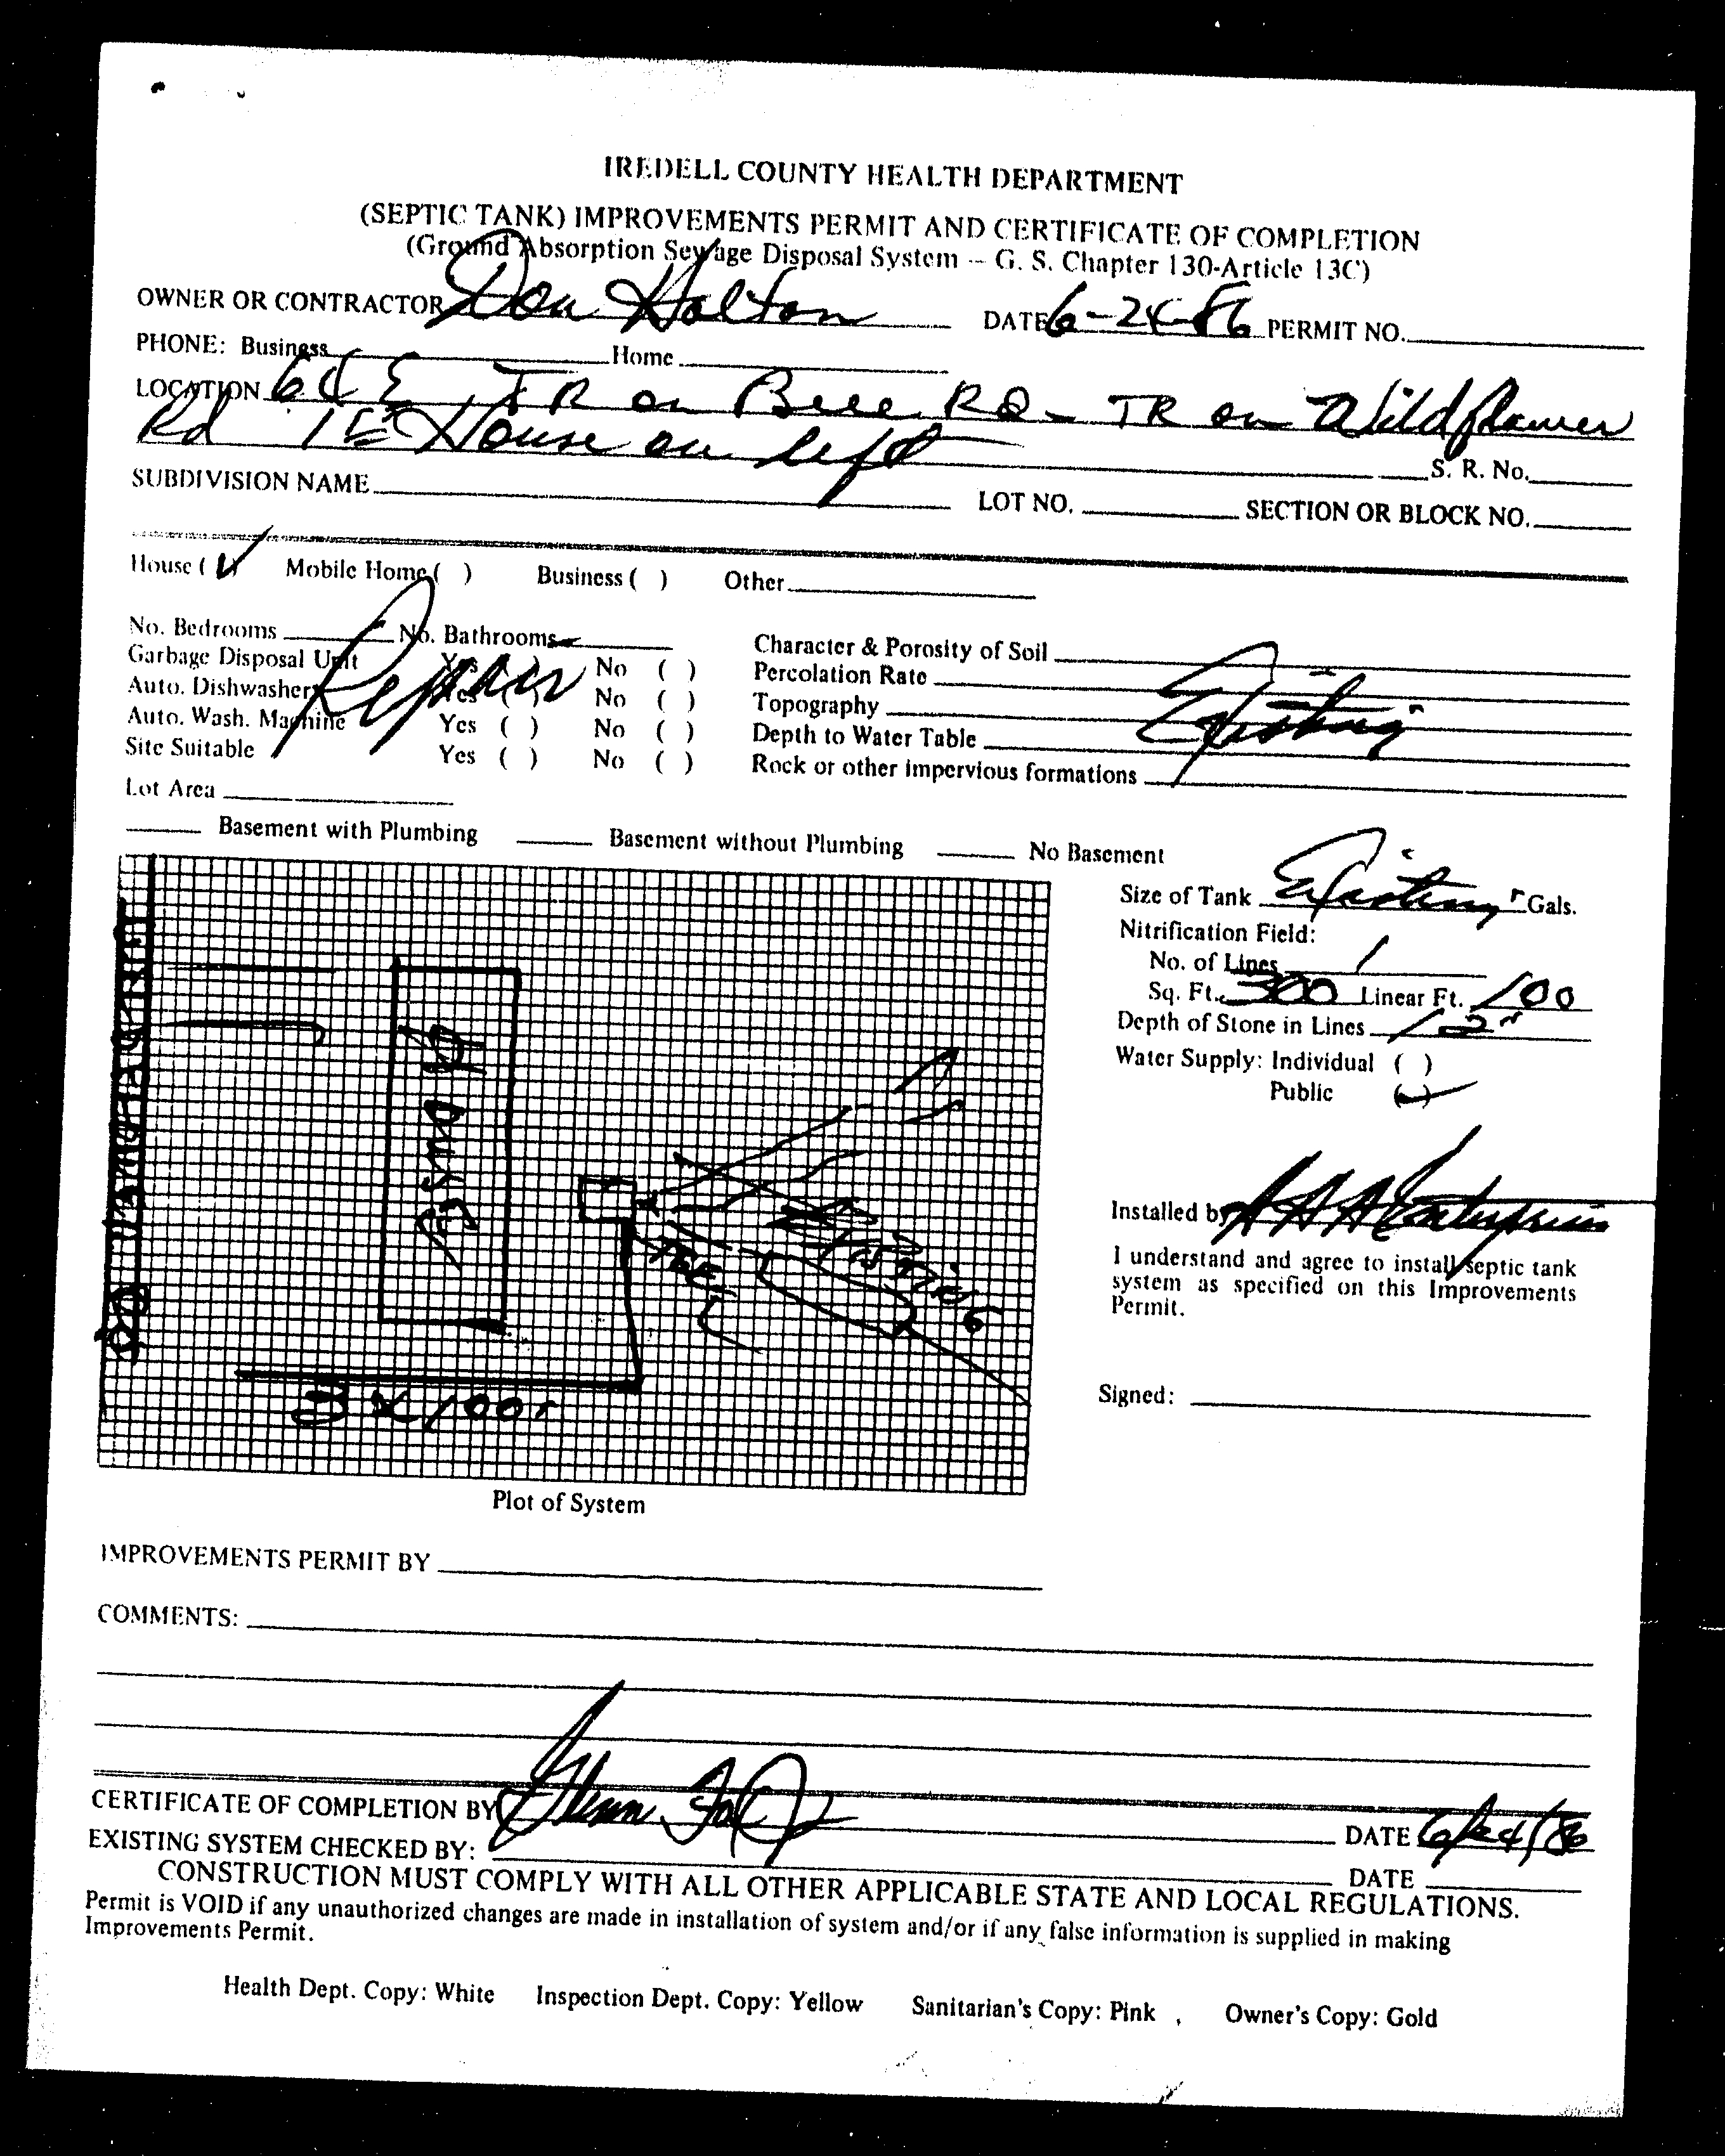 IREDELL COUNTY HEALTH DEPARTMENT
(SEPTIC TANK) IMPROVEMENTS PERMIT AND CERTIFICATE OF COMPLETION
(Ground Absorption Sewage Disposal System -- G. S. Chapter 130-Article 13C)
OWNER OR CONTRACTOR Don Holton DATE 6-24-86 PERMIT NO.
PHONE: Business Home
LOCATION 64 E, TR on Bell RD - TR on Wildflower
Rd 1st House on left S. R. No.
SUBDIVISION NAME LOT NO. SECTION OR BLOCK NO.
House (✓) Mobile Home ( ) Business ( ) Other
No. Bedrooms No. Bathrooms Character & Porosity of Soil
Garbage Disposal Unit Yes ( ) No ( ) Percolation Rate
Auto. Dishwasher Yes ( ) No ( ) Topography
Auto. Wash. Machine Yes ( ) No ( ) Depth to Water Table
Site Suitable Yes ( ) No ( ) Rock or other impervious formations
Repair Existing
Lot Area
Basement with Plumbing Basement without Plumbing No Basement
Size of Tank Existing Gals.
Nitrification Field:
No. of Lines 1
Sq. Ft. 300 Linear Ft. 100
Depth of Stone in Lines 12"
Water Supply: Individual ( )
Public (✓)
RD
House
3 x 100'
Installed by AAA Enterprises
I understand and agree to install septic tank
system as specified on this Improvements
Permit.
Signed:
Plot of System
IMPROVEMENTS PERMIT BY
COMMENTS:
CERTIFICATE OF COMPLETION BY Glenn DATE 6/24/86
EXISTING SYSTEM CHECKED BY: DATE
CONSTRUCTION MUST COMPLY WITH ALL OTHER APPLICABLE STATE AND LOCAL REGULATIONS.
Permit is VOID if any unauthorized changes are made in installation of system and/or if any false information is supplied in making
Improvements Permit.
Health Dept. Copy: White Inspection Dept. Copy: Yellow Sanitarian's Copy: Pink , Owner's Copy: Gold